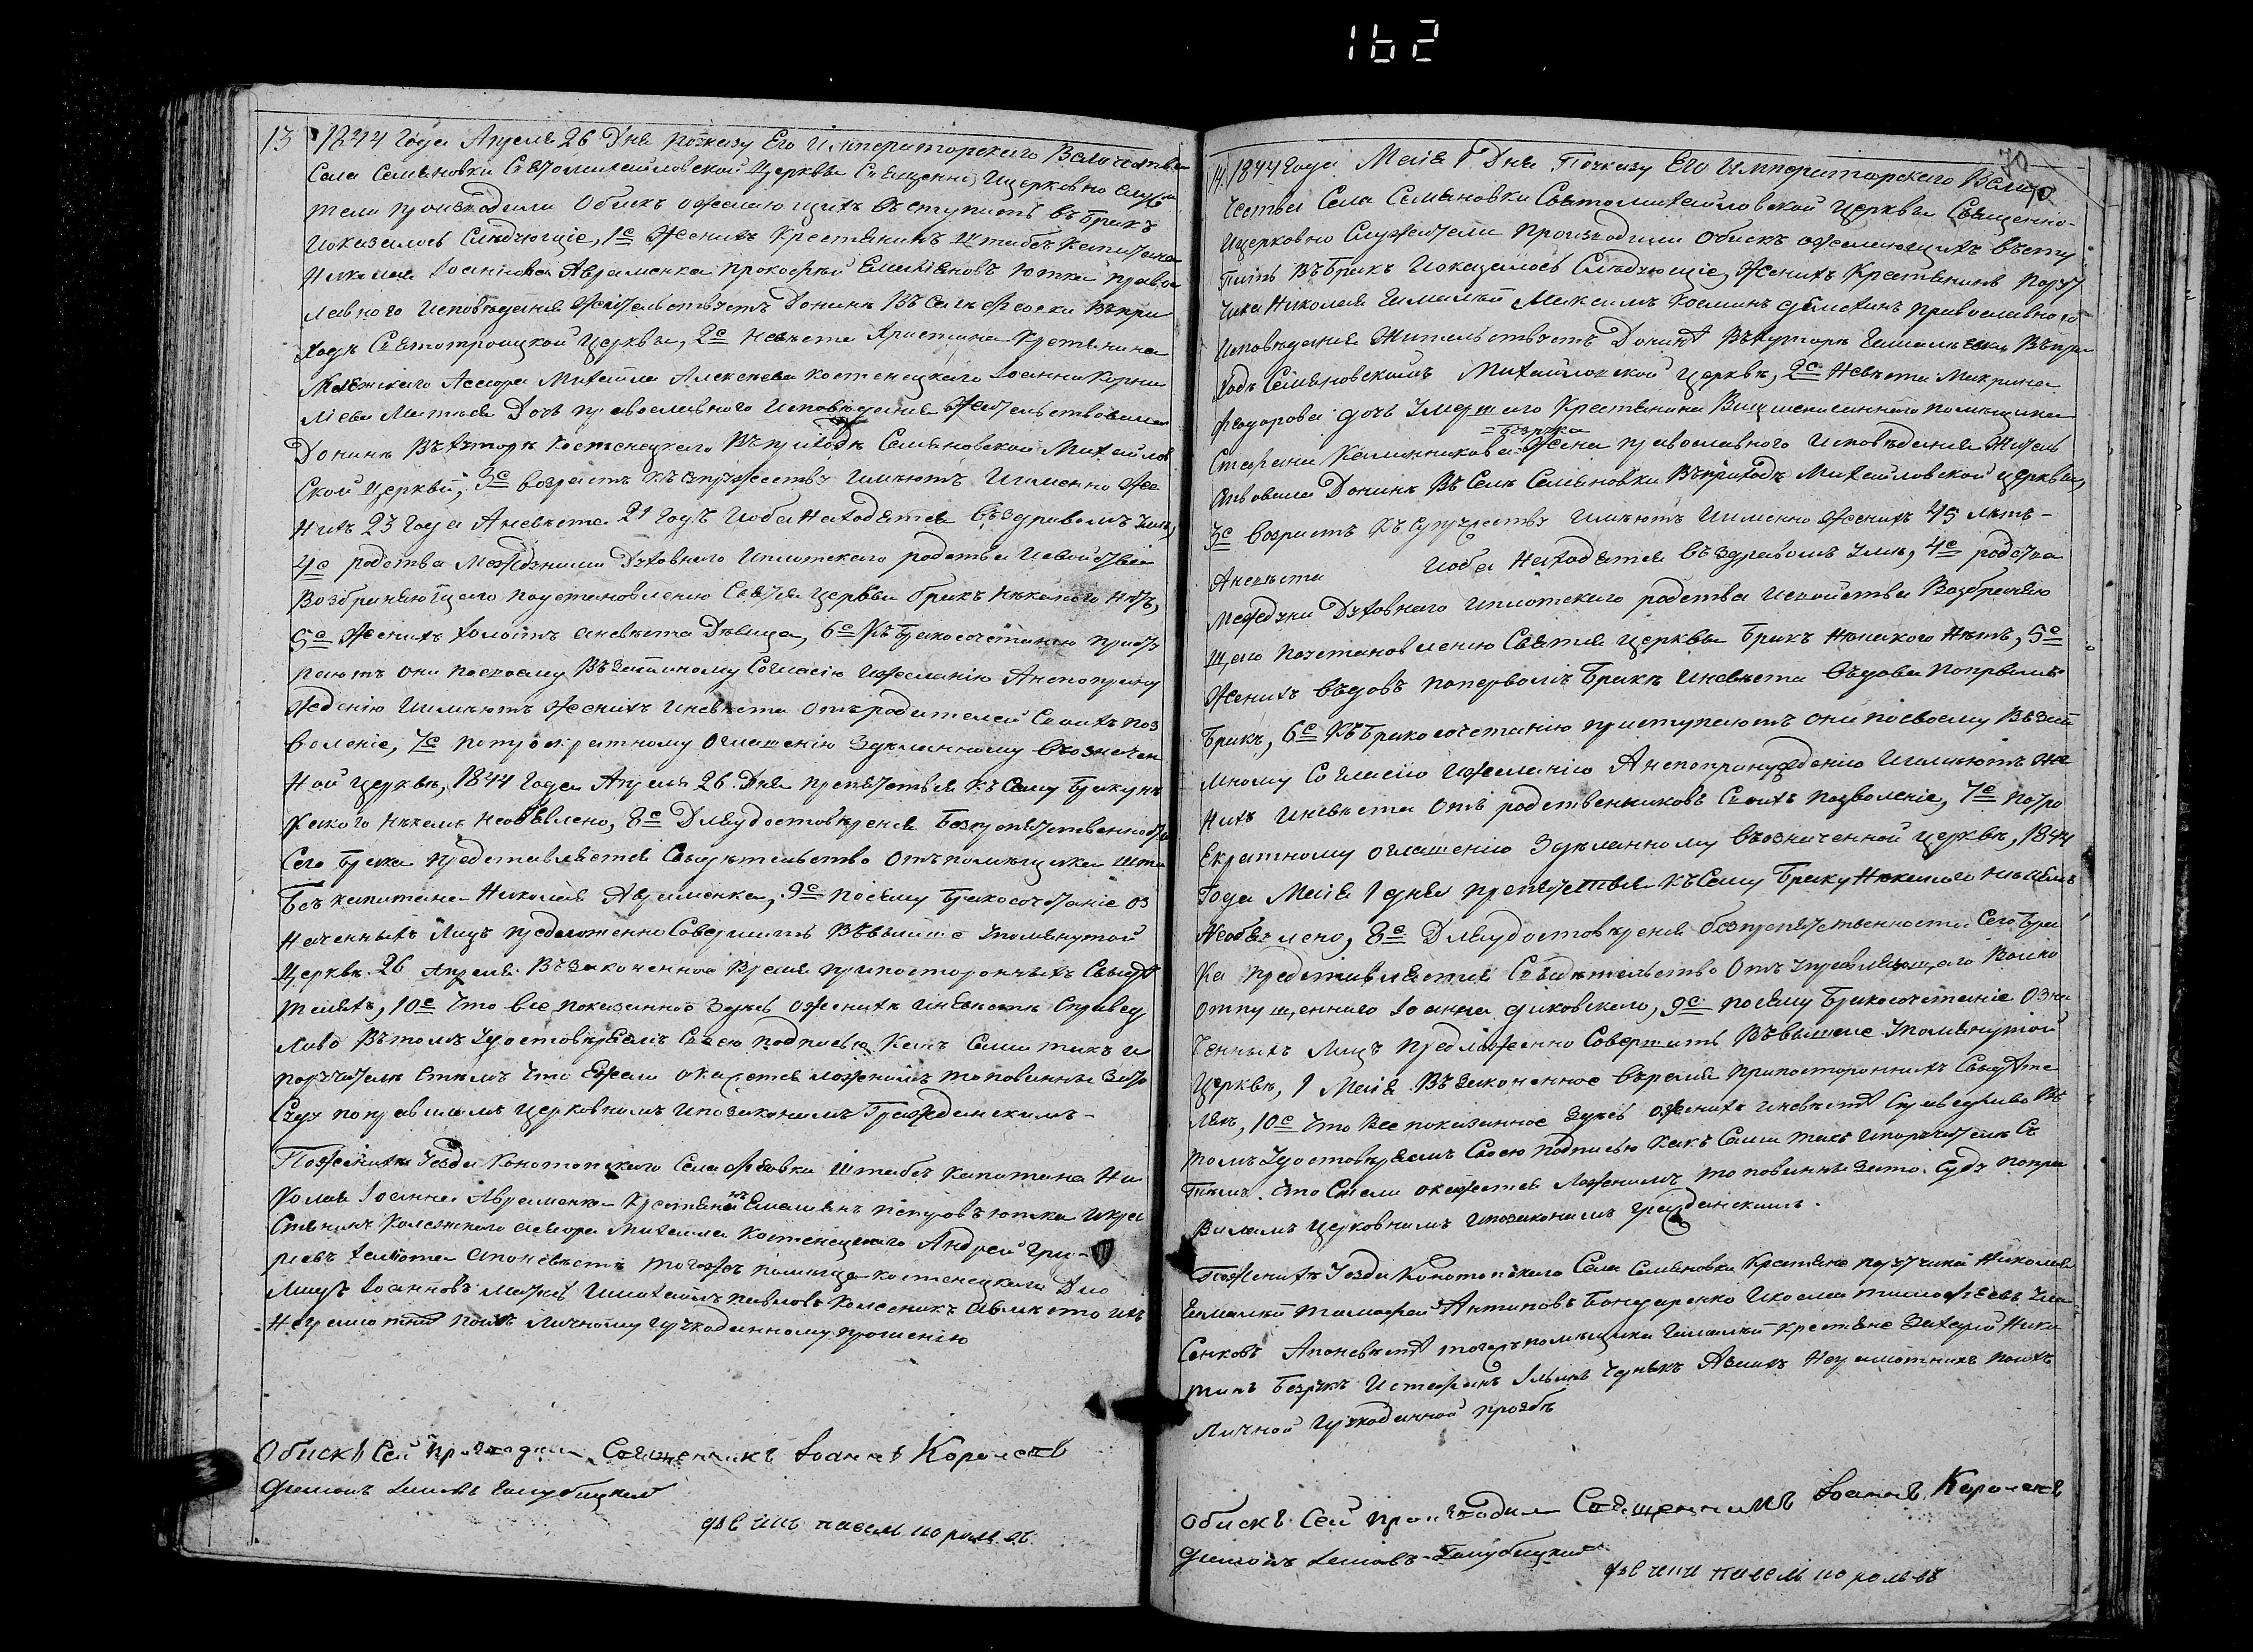 162
13 1844 года Апреля 26 Дня По указу Его Императорского Величества
Села Семяновки Святомихайловской Церквы Священно и церковно служи
тели производили Обыск о желающихъ вступить въ Бракъ
и оказалось следующее, 1е Женихъ Крестянинъ Штабсъ Капитана
Николая Іоаннова Авраменка Прокофий Емилияновъ Ютка право
лавного исповедания жительствуетъ Донине въ селе Фесовки въ при
ходе Святотроицкой Церквы, 2е невеста Христина Крестянина
Колежского Асесора Михаила Алексеева Костенецкого Іоанна Корни
лиева дочь православного исповедания жительствовала
Донине въ хуторе Костенецкого въ приходе Семяновской Михайлов
ской Церквы, 3е возрастъ къ супружеству имеютъ и именно же
нихъ 23 года а невеста 21 годъ и оба находятся въ здравомъ уме,
4е родства между ними Духовного и плотского родства и свойствія
возбраняющаго по установлению Святыя Церквы бракъ никакого нетъ,
5е Женихъ холостъ а невеста Девица, 6е Къ бракосочетанию присту
паютъ они по своему взаимному Согласию и желанію а не по прину
ждению и имеютъ Женихъ и невеста отъ родителей своихъ поз
воленіе, 7е по троекратному оглашению зделанному въ означен
ной церкве, 1844 года Апреля 26 Дня препятствия къ сему браку ни
какого никемъ не объявлено, 8е Для удостоверения безпрепятственности
Сего брака представляется Свидетельство отъ помещика шта
бсъ капитана Николая Авраменка, 9е по сему бракосочетаніе оз
наченныхъ лицъ предположенно совершить въ выше упомянутой
Церкве 26 Апреля въ законенное время при посторонныхъ свиде
теляхъ, 10е что все показанное здесь о женихе и невесте справед
ливо въ томъ удостоверяемъ своею подписью какъ сами такъ и
поручители с темъ что ежели окажется ложнымъ то повинны за то
Суду по правиламъ церковнымъ и по законамъ гражданскимъ -
По женихе уезда Конотопского Села Фесовки Штабсъ Капитана Ни
колая Іоанна Авраменка крестяне Емилиянъ Петровъ Ютка и кре
стянинъ Колежского асесора Михаила Костенецкого Андрей Гри-
а по невесте тогожъ помещика Костенецкого
Іоанновъ и Михаилъ Павловъ Колесникъ а вместо ихъ
неграмотныхъ по ихъ личному и рукоданному прошению
Обискъ сей производили Священникъ Іоаннъ Королевъ
Голубицкий
Королевъ
70
14. 1844 года Маія 1 Дня По указу Его Императорского Вели
чества Села Семяновки Святомихайловской церквы Священно-
и церковно Служители производили Обыскъ о желающихъ всту
пить въ Бракъ и оказалось следующее, Женихъ Крестянинъ Пору
чика Николая Гамалеи Максимъ православного
исповедания Жительствуетъ Донине въ хуторе Гамалеевки въ при
ходе Семяновскомъ Михайловской Церкве, 2е Невеста Макрина
Феодорова дочь умершего Крестянина Вышеписанного помещика
=Безрука
Стефана Калинникова Жена православного исповедания Житель
ствовала Донине въ Селе Семяновки въ приходе Михайловской церквы,
3е возрастъ къ супружеству имеютъ и именно Женихъ 45 летъ -
А невеста и оба находятся въ здравомъ уме, 4е родства
между ни Духовного и плотского родства и свойства возбраняю
щаго по установлению Святыя церквы бракъ никакого нетъ, 5е
Женихъ вдовъ по первомъ браке и невеста вдова по первомъ
браке, 6е Къ бракосочетанию приступаютъ они по своему взаи
мному согласию и желанию а не по принуждению и имеютъ Же
нихъ и невеста отъ родственниковъ своихъ позволеніе, 7е по тро
екратному оглашению зделанному въ означенной церкве, 1844
Года Маія 1 дня препятствия къ сему браку никакого никемъ
не объявлено, 8е Для удостоверения безпрепятственности сего бра
ка представляется Свидетельство отъ управляющего
отпущенного Іоанна , 9е по сему бракосочетаніе озна
ченныхъ лицъ предположенно совершить въ вышее упомянутой
Церкве, 1 Маія въ законенное время при посторонныхъ свидете
ляхъ, 10е что все показанное здесь о женихе и невесте справедливо въ
томъ удостоверяемъ своею подписью какъ сами такъ и поручители съ
темъ что ежели окажется ложнымъ то повинны за то Суду по пра
виламъ церковнымъ и по законамъ гражданскимъ.
По женихе Уезда Конотопского Села Семяновки Крестяне поручика Николая
Гамалеи Тимофей Антиповъ Бондаренко и Косма Тимофеевъ
а по невесте тогожъ помещика Гамалеи крестяне Захарий Ники
тинъ Безрукъ и Стефанъ а за ихъ неграмотныхъ по ихъ
личной и рукоданной прозбе
Обискъ Сей производили Священникъ Іоаннъ Королевъ
Голубицкий